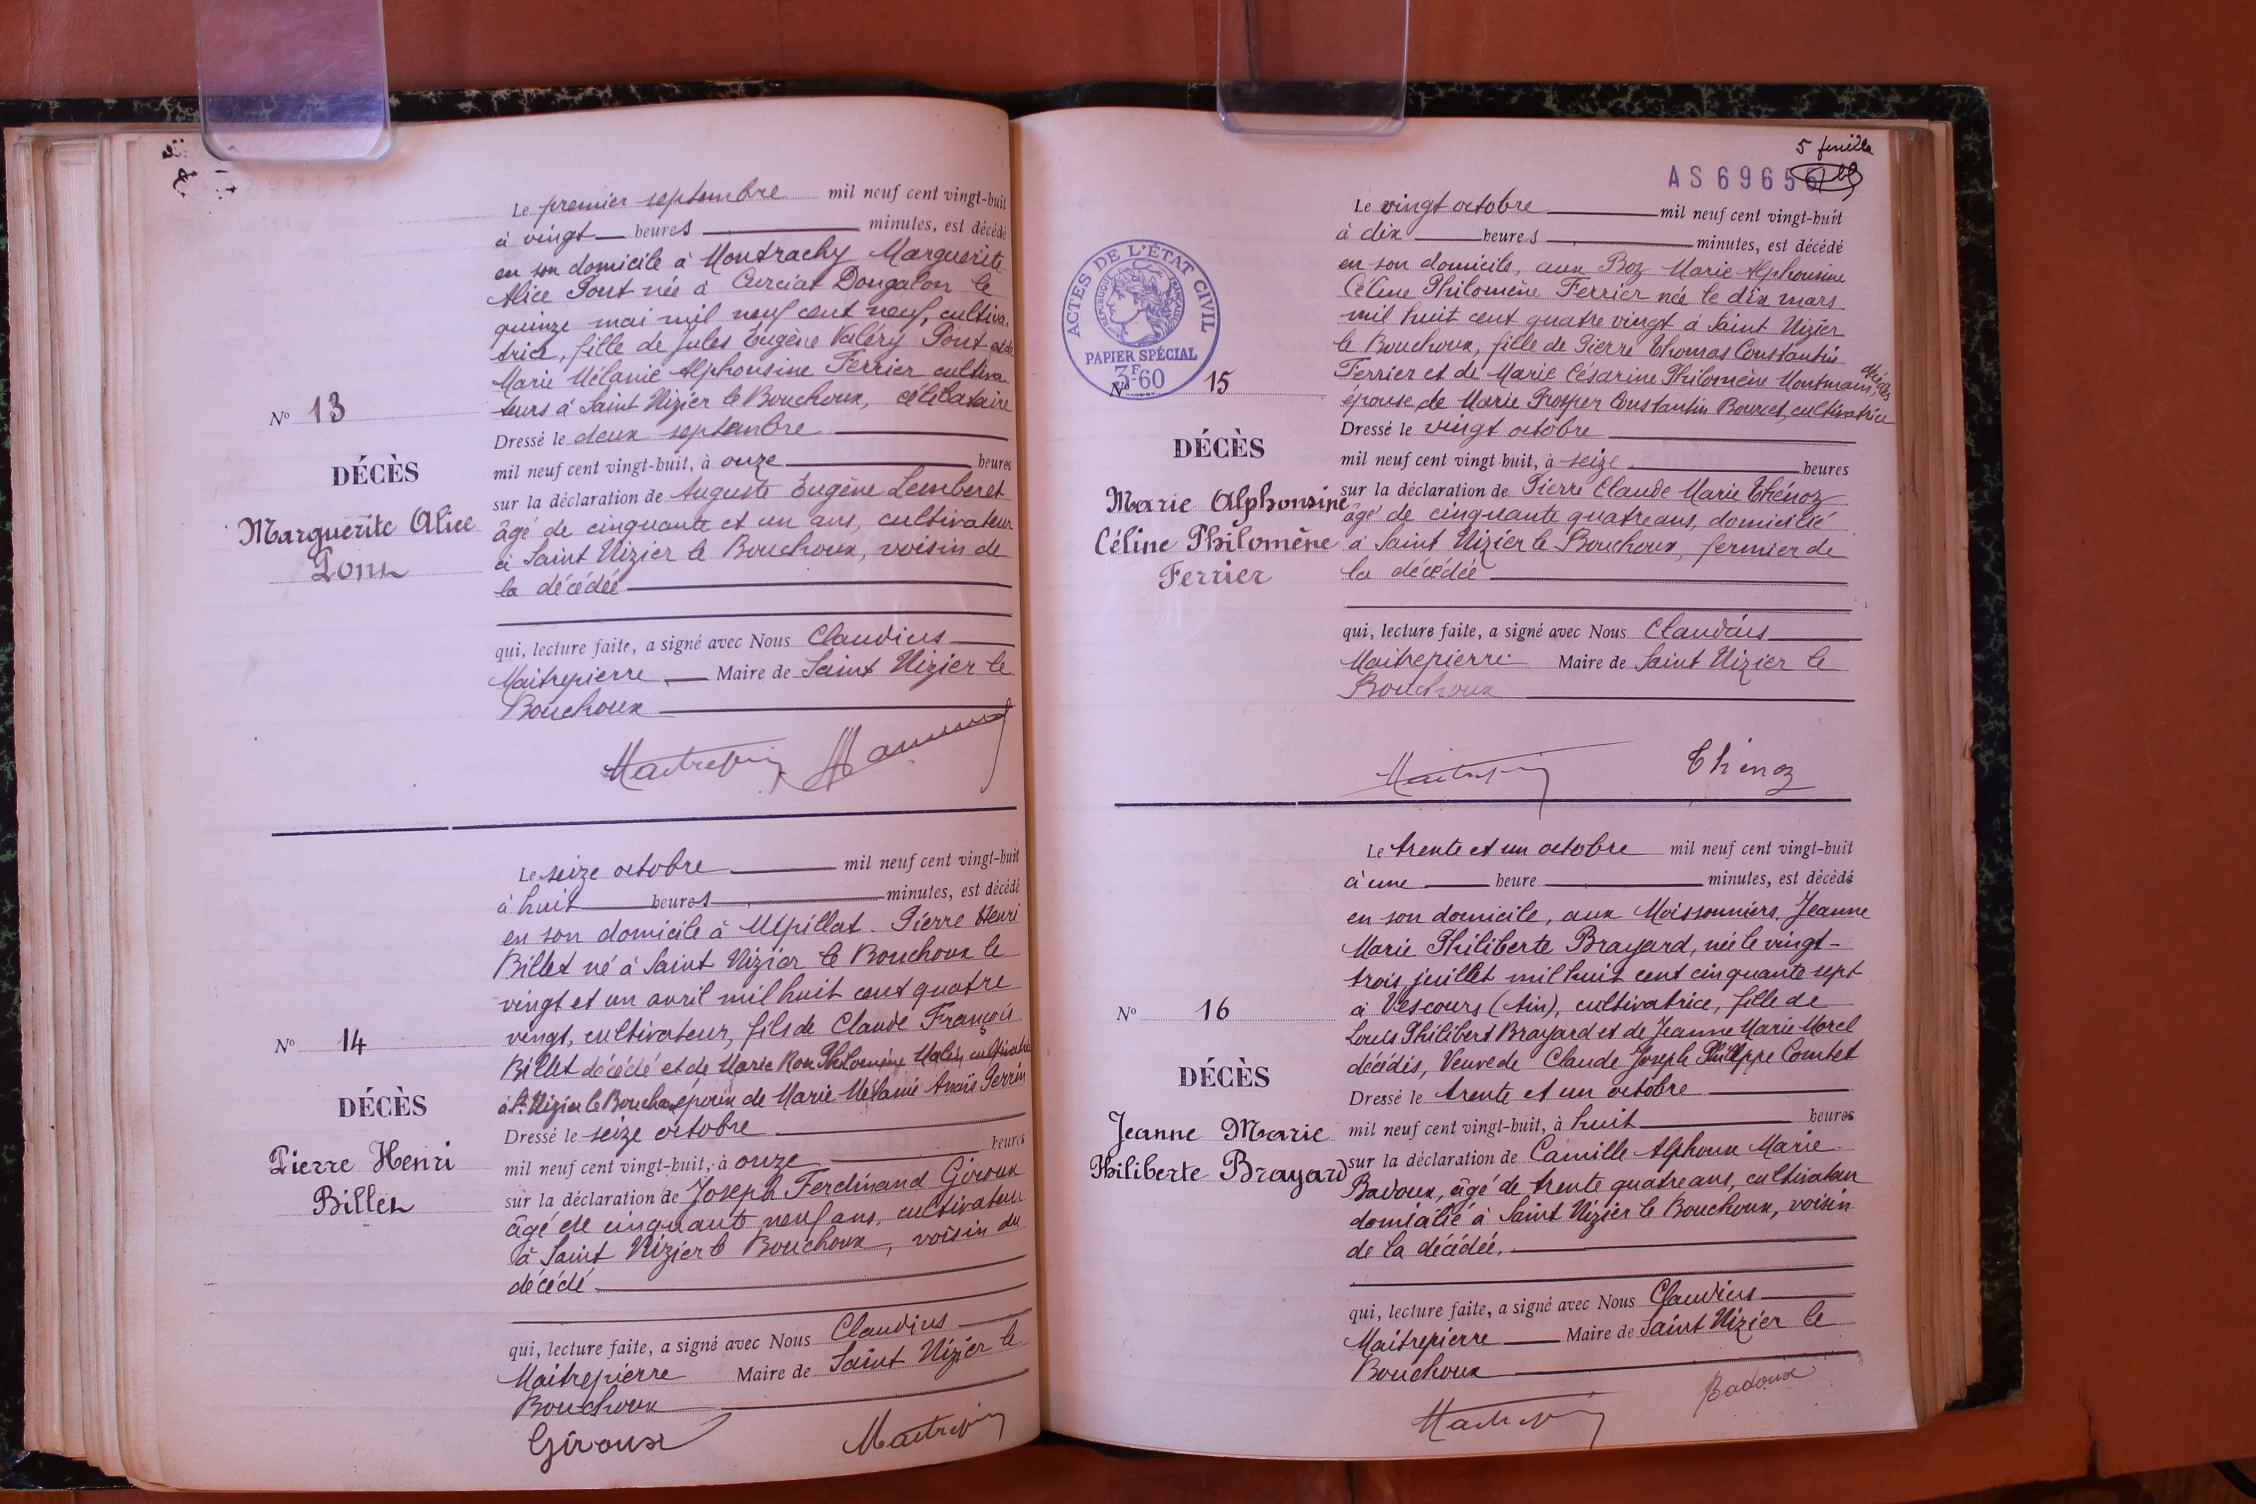 N° 13
DÉCÈS
Marguerite Alice
Pont
Le premier septembre mil neuf cent vingt-huit
à vingt heures minutes, est décédé
en son domicile à Montrachy Marguerite
Alice Pont née à Curciat Dongalon le
quinze mai mil neuf cent neuf, cultiva-
trice, fille de Jules Eugène Valéry Pont et de
Marie Mélanie Alphonsine Ferrier cultiva
teurs à Saint Nizier le Bouchoux, célibataire
Dressé le deux septembre
mil neuf cent vingt-huit, à onze heures
sur la déclaration de Auguste Eugène
âgé de cinquante et un ans, cultivateur
à Saint Nizier le Bouchoux, voisin de
la décédée
qui, lecture faite, a signé avec Nous Claudius
Maitrepierre Maire de Saint Nizier le
Bouchoux
Maitrepierre
N° 14
DÉCÈS
Pierre Henri
Billet
Le seize octobre mil neuf cent vingt-huit
à huit heures minutes, est décédé
en son domicile à Mépillat Pierre Henri
Billet né à Saint Nizier le Bouchoux le
vingt et un avril mil huit cent quatre
vingt, cultivateur, fils de Claude François
Billet décédé et de Marie Rose Philomène cultivatrice
à St Nizier le Bouchoux époux de Marie Mélanie Anaïs Perrin
Dressé le seize octobre
mil neuf cent vingt-huit, à onze heures
sur la déclaration de Joseph Ferdinand Giroux
âgé de cinquante neuf ans, cultivateur
à Saint Nizier le Bouchoux, voisin du
décédé
qui, lecture faite, a signé avec Nous Claudius
Maitrepierre Maire de Saint Nizier le
Bouchoux
Giroux Maitrepierre
5 feuille
AS 6965
ACTES DE L'ÉTAT CIVIL
RÉPUBLIQUE FRANÇAISE
PAPIER SPÉCIAL
3F60
N° 15
DÉCÈS
Marie Alphonsine
Céline Philomène
Ferrier
Le vingt octobre mil neuf cent vingt-huit
à dix heures minutes, est décédé
en son domicile, aux Boz Marie Alphonsine
Céline Philomène Ferrier née le dix mars
mil huit cent quatre vingt à Saint Nizier
le Bouchoux, fille de Pierre Thomas Constantin
Ferrier et de Marie Césarine Philomène Montmain, décédés
épouse de Marie Prosper Constantin Bouvet, cultivatrice
Dressé le vingt octobre
mil neuf cent vingt huit, à seize heures
sur la déclaration de Pierre Claude Marie Thénoz
âgé de cinquante quatre ans, domicilié
à Saint Nizier le Bouchoux, fermier de
la décédée
qui, lecture faite, a signé avec Nous Claudius
Maitrepierre Maire de Saint Nizier le
Bouchoux
Maitrepierre Thénoz
N° 16
DÉCÈS
Jeanne Marie
Philiberte Brayard
Le trente et un octobre mil neuf cent vingt-huit
à une heure minutes, est décédé
en son domicile, aux Moissonniers Jeanne
Marie Philiberte Brayard, née le vingt-
trois juillet mil huit cent cinquante sept
à Vescours (Ain), cultivatrice, fille de
Louis Philibert Brayard et de Jeanne Marie Morel
décédés, Veuve de Claude Joseph Philippe Comtet
Dressé le trente et un octobre
mil neuf cent vingt-huit, à huit heures
sur la déclaration de Camille Alphonse Marie
Badoux, âgé de trente quatre ans, cultivateur
domicilié à Saint Nizier le Bouchoux, voisin
de la décédée.
qui, lecture faite, a signé avec Nous Claudius
Maitrepierre Maire de Saint Nizier le
Bouchoux
Maitrepierre Badoux